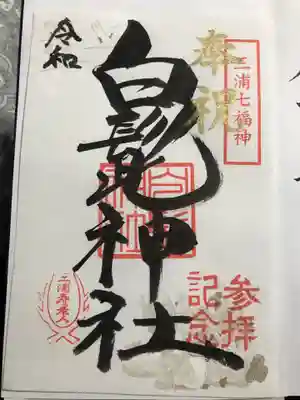 奉祝
三浦七福神
白髭神社
令和
参拝
記念
三浦寿老人